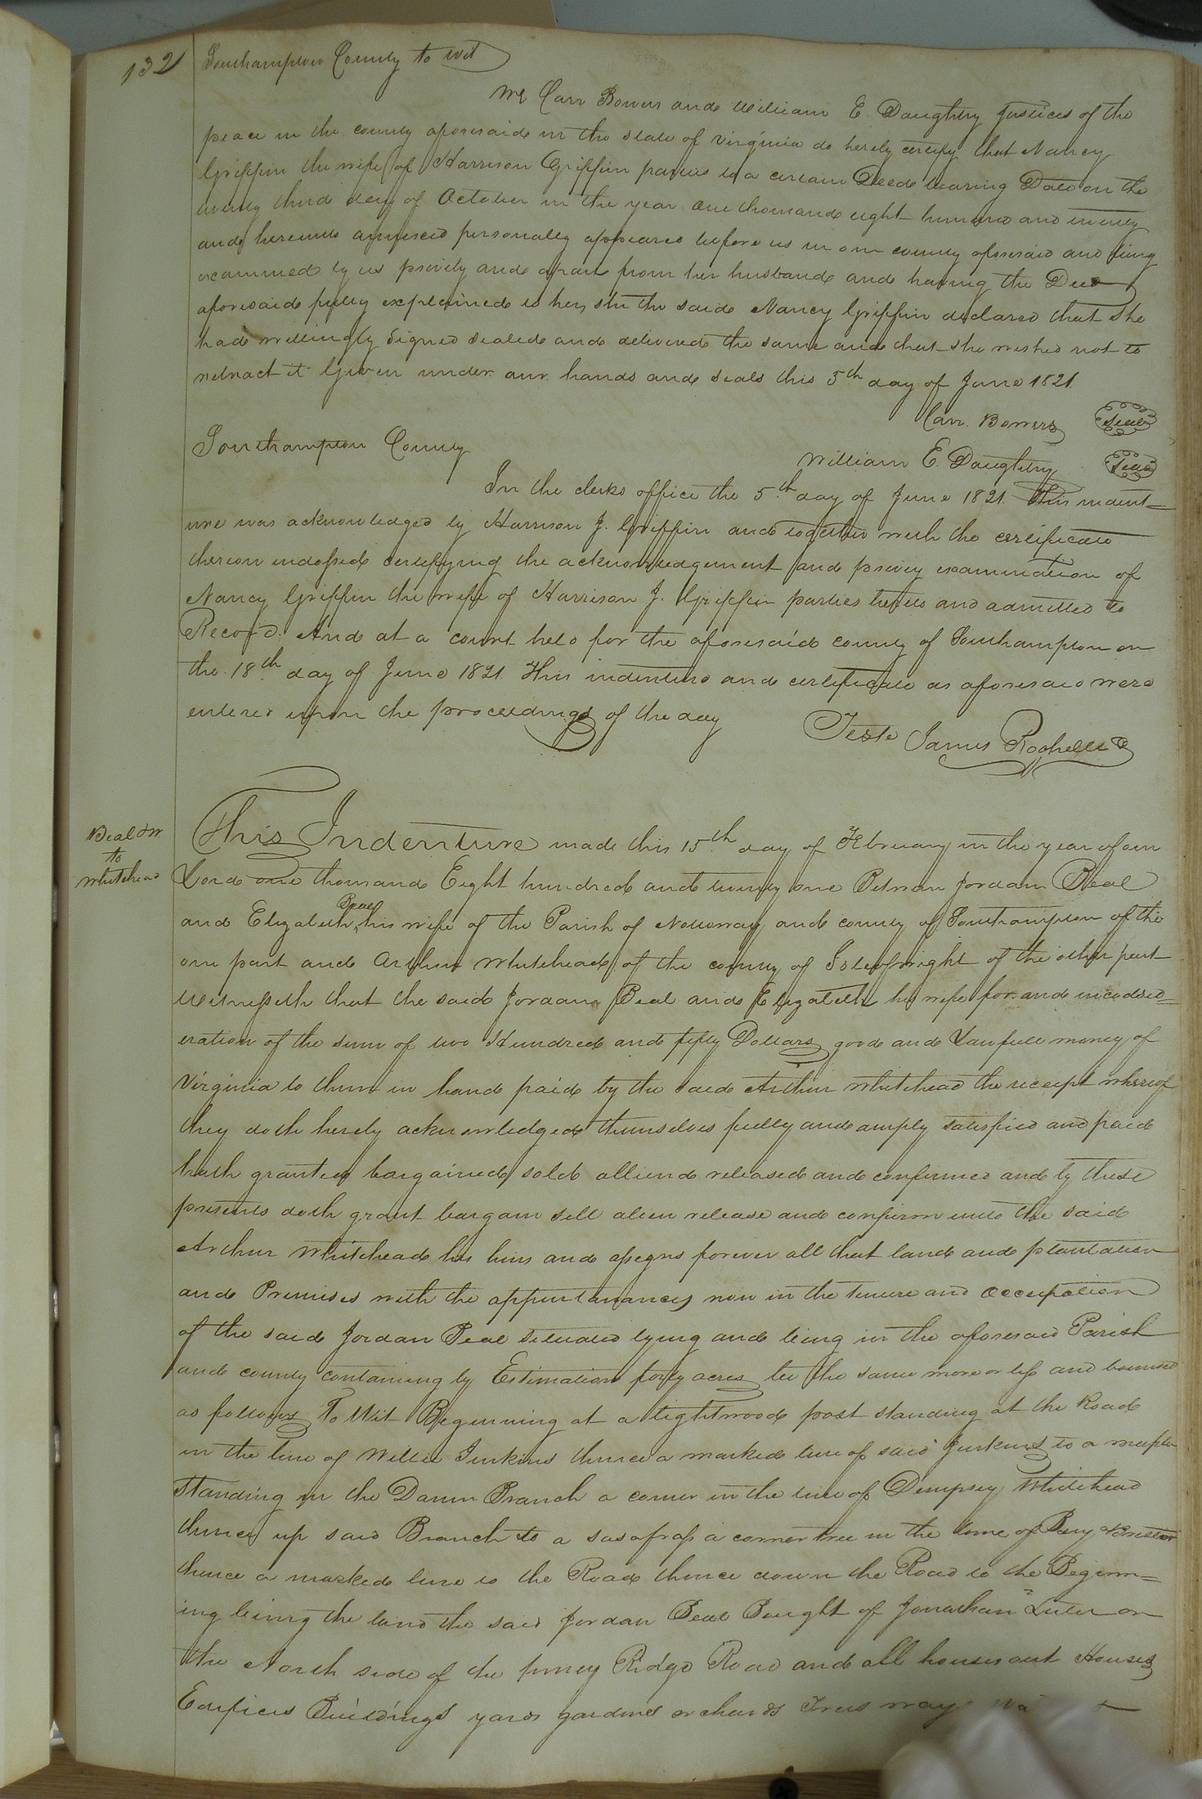 132
Southampton County to wit
We Carr Bowers and William E. Daughtry Justices of the
peace in the county aforesaid in the state of Virginia do hereby certify that Nancy
Griffin the wife of Harrison Griffin parties to a certain Deed bearing Date on the
twenty third day of October in the year one thousand eight hundred and twenty
and hereunto annexed personally appeared before us in our county aforesaid and being
examined by us privily and apart from her husband and having the Deed
aforesaid fully explained to her, she the said Nancy Griffin declared that she
had willingly signed sealed and delivered the same and that she wished not to
retract it Given under our hands and seals this 5th day of June 1821
Carr Bowers Seal
William E. Daughtry Seal
Southampton County
In the clerks office the 5th day of June 1821 This indent=
ure was acknowledged by Harrison J. Griffin and together with the certificate
thereon indorsed certifying the acknowledgement and privy examination of
Nancy Griffin the wife of Harrison J. Griffin parties hereto and admitted to
Record. And at a court held for the aforesaid county of Southampton on
the 18th day of June 1821 This indenture and certificate as aforesaid were
entered upon the proceedings of the day
Teste James Rochelle
Beal &
to
Whitehead
This Indenture made this 15th day of February in the year of our
Lord one thousand Eight hundred and twenty one Between Jordan Beal
and Elizabeth Beal his wife of the Parish of Nottoway and county of Southampton of the
one part and Arthur Whitehead of the county of Isle of wight of the other part
Witnesseth that the said Jordan Beal and Elizabeth his wife for and in consid=
eration of the sum of two Hundred and fifty Dollars good and Lawfull money of
Virginia to them in hand paid by the said Arthur Whitehead the receipt whereof
they doth hereby acknowledged themselves fully and amply satisfied and paid
hath granted bargained sold aliend released and confirmed and by these
presents doth grant bargain sell alien release and confirm unto the said
Arthur Whitehead his heirs and assigns forever all that land and plantation
and Premises with the appurtanances now in the tenure and occupation
of the said Jordan Beal situated lying and being in the aforesaid Parish
and county containing by Estimation forty acres be the same more or less and bounded
as follows To Wit Beginning at a lightwood post standing at the Road
in the line of Jenkins thence a marked line of said Jenkins to a
standing in the Damm Branch a corner in the line of Dempsey Whitehead
thence up said Branch to a sasafrass a corner tree in the line of
thence a marked line to the Road thence down the Road to the Beginn=
ing being the land the said Jordan Beal Bought of Jonathan Luter on
the North side of the piney Ridge Road and all houses out Houses
Edifices Buildings yards gardens orchards Trees ways